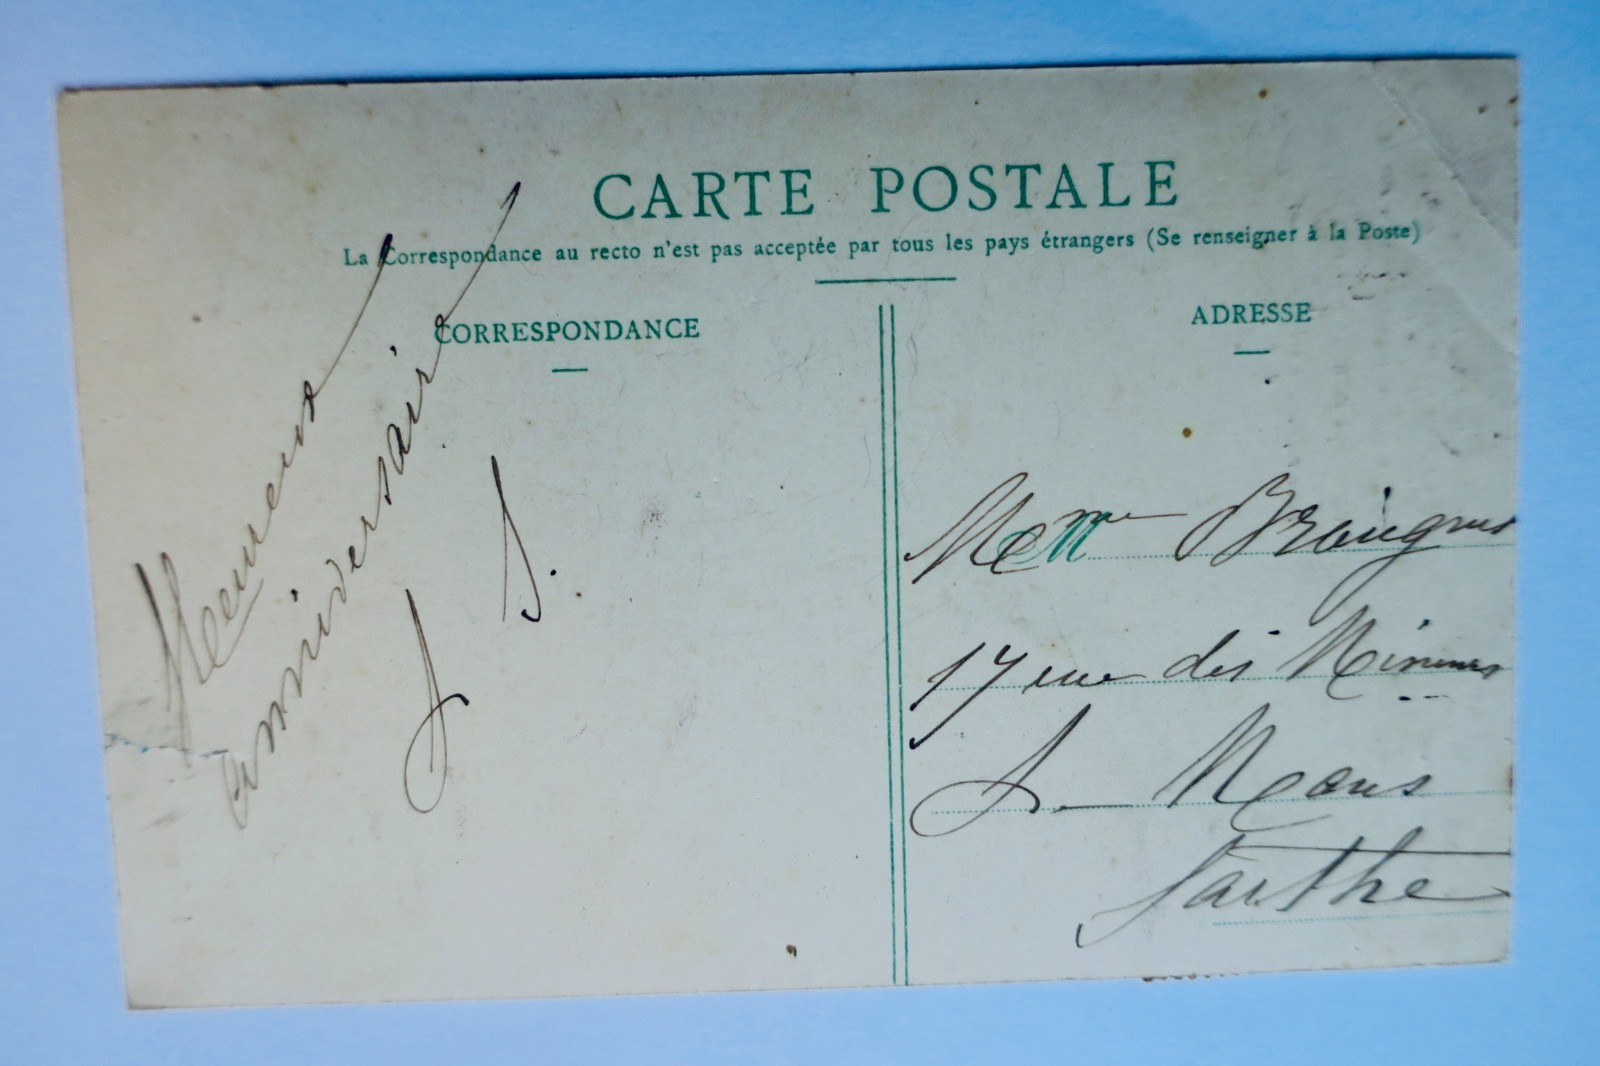 CARTE POSTALE
La Correspondance au recto n'est pas acceptée par tous les pays étrangers (Se renseigner à la Poste)
CORRESPONDANCE
Heureux
anniversaire
S.
ADRESSE
Mme
17 rue des
Le Mans
Sarthe